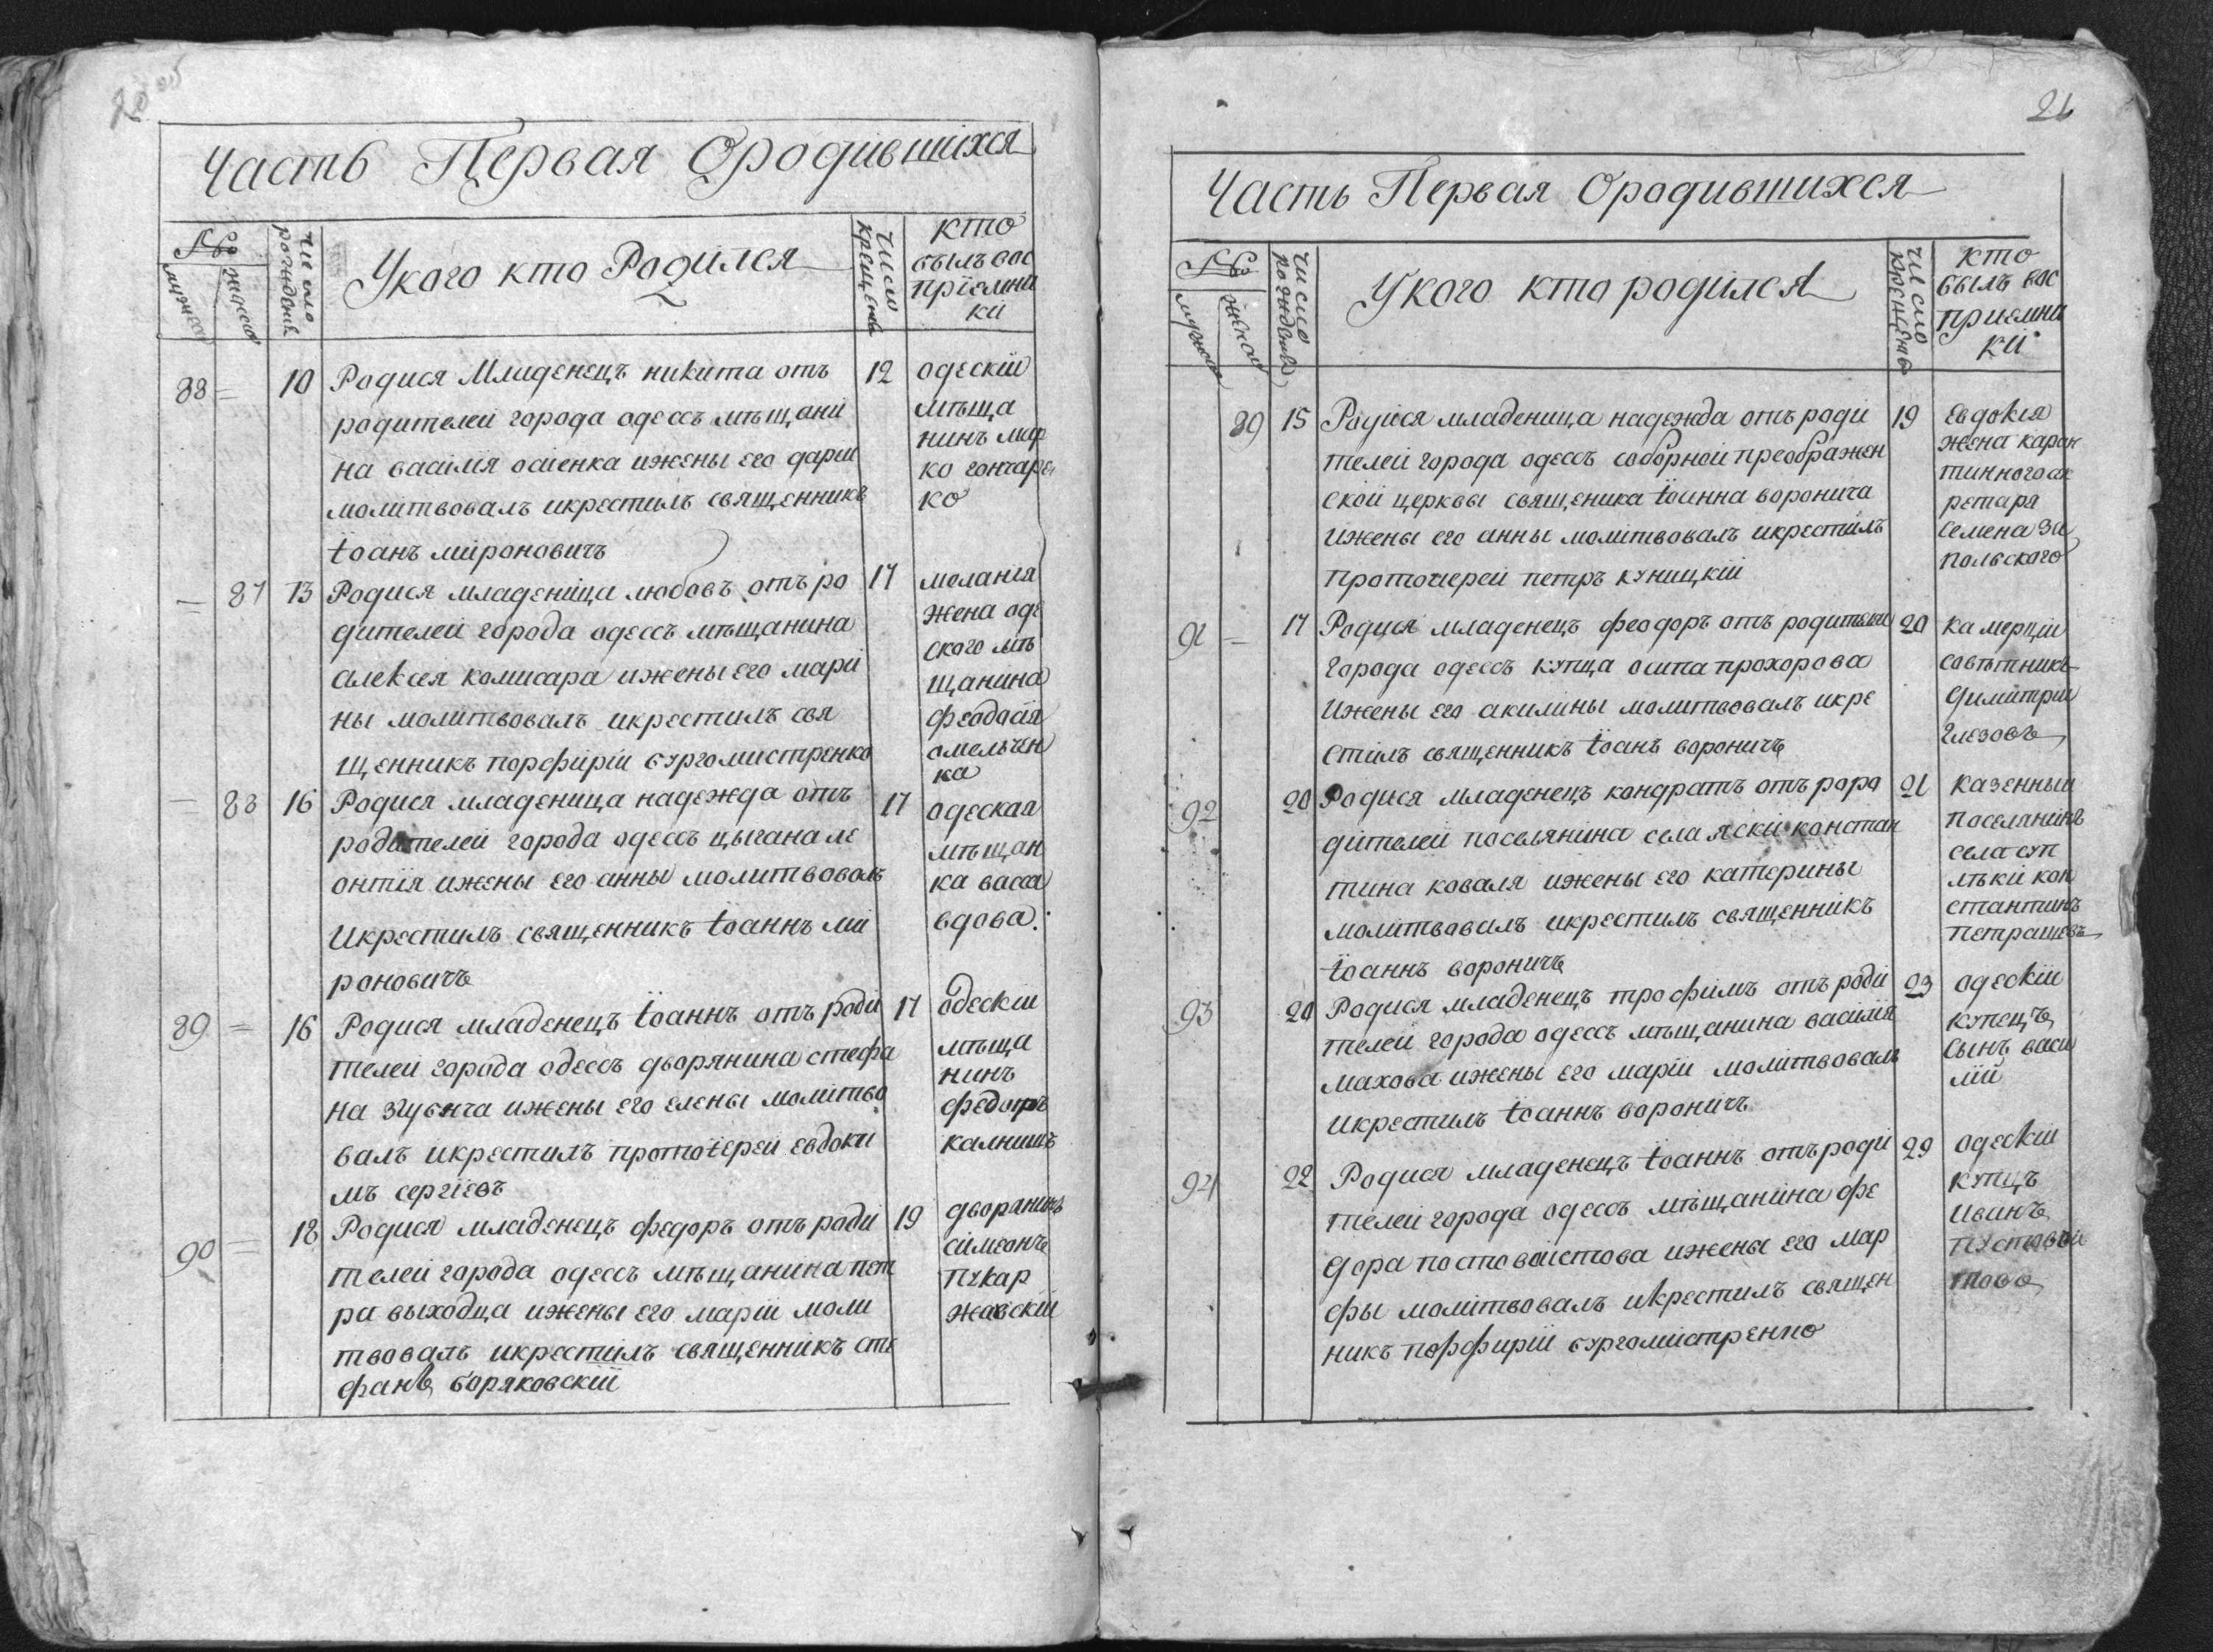 Часть Первая Ородившихся
№
мужеска
женска
число рождения
Укого кто Родился
число крещения
кто
былъ вос
пріемни
ки
88
10
Родися Младенецъ никита отъ
родителей города одессъ мѣщани
на василия осиенка ижены его дарии
молитвовалъ икрестилъ священникъ
іоанъ мироновичъ
12
одескій
мѣща
нинъ мар
ко гончаре
ко
87
13
Родися младеница любовъ отъ ро
дителей города одессъ мѣщанина
алексея комисара ижены его марі
ны молитвовалъ икрестилъ свя
щенникъ порфирій бургомистренко
17
мелания
жена оде
ского мѣ
щанина
феодосія
омельчен
ка
88
16
Родися младеница надежда отъ
родителей города одессъ цыгана ле
онтія ижены его анны молитвовалъ
Икрестилъ священникъ іоаннъ ми
роновичъ
17
одеская
мѣщан
ка васса
вдова.
89
16
Родися младенецъ іоаннъ отъ роди
телей города одессъ дворянина стефа
на ижены его елены молитво
валъ икрестилъ протоіерей евдоки
мъ сергіевъ
17
одескій
мѣща
нинъ
федоръ
калнишъ
90
18
Родися младенецъ федоръ отъ роди
телей города одессъ мѣщанина пет
ра выходца ижены его маріи моли
твовалъ икрестилъ священникъ сте
фанъ боряковскій
19
дворянинъ
симеонъ
пукар
жевскій
21
Часть Первая Ородившихся
№
мужеска
женска
число рождения
Укого кто родился
число крещения
кто
былъ вос
приемни
ки
89
15
Родися младеница надежда отъ роди
телей города одессъ соборной преображен
ской церквы священика іоанна воронича
Ижены его анны молитвовалъ икрестилъ
протоиерей петръ куницкій
19
Евдокія
жена каран
тинного сек
ретаря
семена За
польского
91
17
Родися младенецъ феодоръ отъ родителей
города одессъ купца осипа прохорова
Ижены его акилины молитвовалъ икре
стилъ священникъ іоанъ вороничъ
20
камерціи
совѣтникъ
Димитрий
Глезовъ
92
20
Родися младенецъ кондратъ отъ роро
дителей поселянина села яски констан
тина коваля ижены его катерины
молитвовалъ икрестилъ священникъ
іоаннъ вороничъ
21
казенный
поселянинъ
села
кон
стантинъ
петрашевъ
93
20
Родися младенецъ трофимъ отъ роди
телей города одессъ мѣщанина василія
махова ижены его маріи молитвовалъ
икрестилъ іоаннъ вороничъ
23
одескій
купецъ
сынъ васи
лій
94
22
Родися младенецъ іоаннъ отъ роди
телей города одессъ мѣщанина фе
дора постовойтова ижены его мар
фы молитвовалъ икрестилъ священ
никъ порфирій бургомистренко
29
одескій
купцъ
иванъ
пустовой
товъ